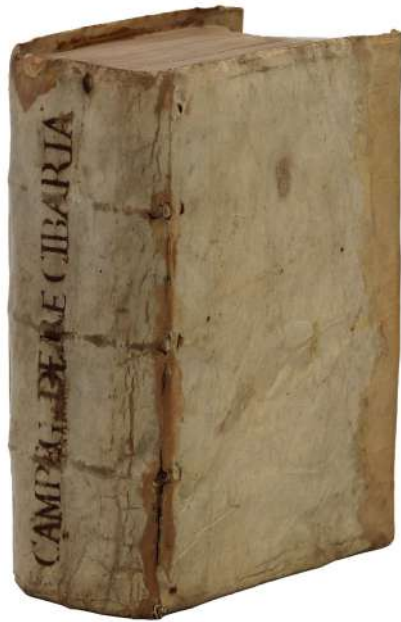 CAMPEG. DE RE CIBARIA